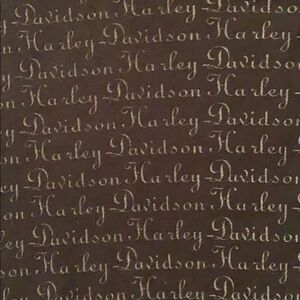 Davidson Harley-Davidson
Davidson Harley-Davidson
Davidson Harley-Davidson
Harley-Davidson Harley
Harley-Davidson Harley
Davidson Harley-Davidson
Davidson Harley-Davidson
Davidson Harley-Davidson
Harley-Davidson Harley
Harley-Davidson Harley
Davidson Harley-Davidson
Harley-Davidson